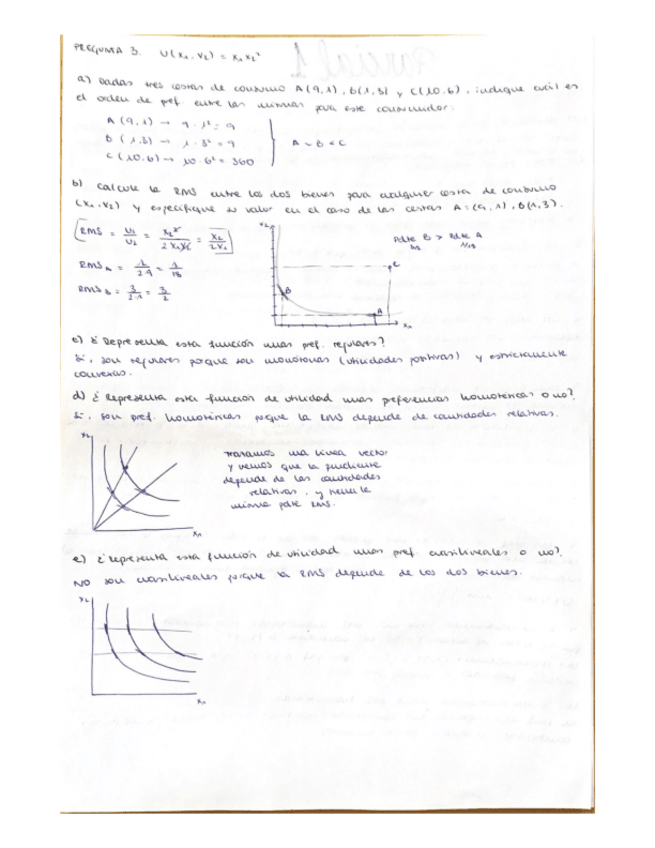 PREGUNTA 3. U(x₁,x₂) = x₁x₂²
a) Dadas tres cestas de consumo A(9,1), B(1,3) y C(10,6), indique cuál es
el orden de pref. entre las mismas para este consumidor.
A(9,1) → 9·1² = 9
B(1,3) → 1·3² = 9
C(10,6) → 10·6² = 360
A ~ B < C
b) Calcule la RMS entre los dos bienes para cualquier cesta de consumo
(x₁,x₂) y especifique su valor en el caso de las cestas A=(9,1), B(1,3).
RMS = U₁/U₂ = x₂²/2x₁x₂ = x₂/2x₁
RMS A = 1/2·9 = 1/18
RMS B = 3/2·1 = 3/2
x₂
Pdte B > Pdte A
3/2 1/18
C
B
A
x₁
c) ¿Representa esta función unas pref. regulares?
Sí, son regulares porque son monótonas (utilidades positivas) y estrictamente
convexas.
d) ¿Representa esta función de utilidad unas preferencias homotéticas o no?
Sí, son pref. homotéticas porque la RMS depende de cantidades relativas.
x₂
Trazamos una línea vector
y vemos que la pendiente
depende de las cantidades
relativas, y tiene la
misma pdte RMS.
x₁
e) ¿Representa esta función de utilidad unas pref. cuasilineales o no?
NO son cuasilineales porque la RMS depende de los dos bienes.
x₂
x₁